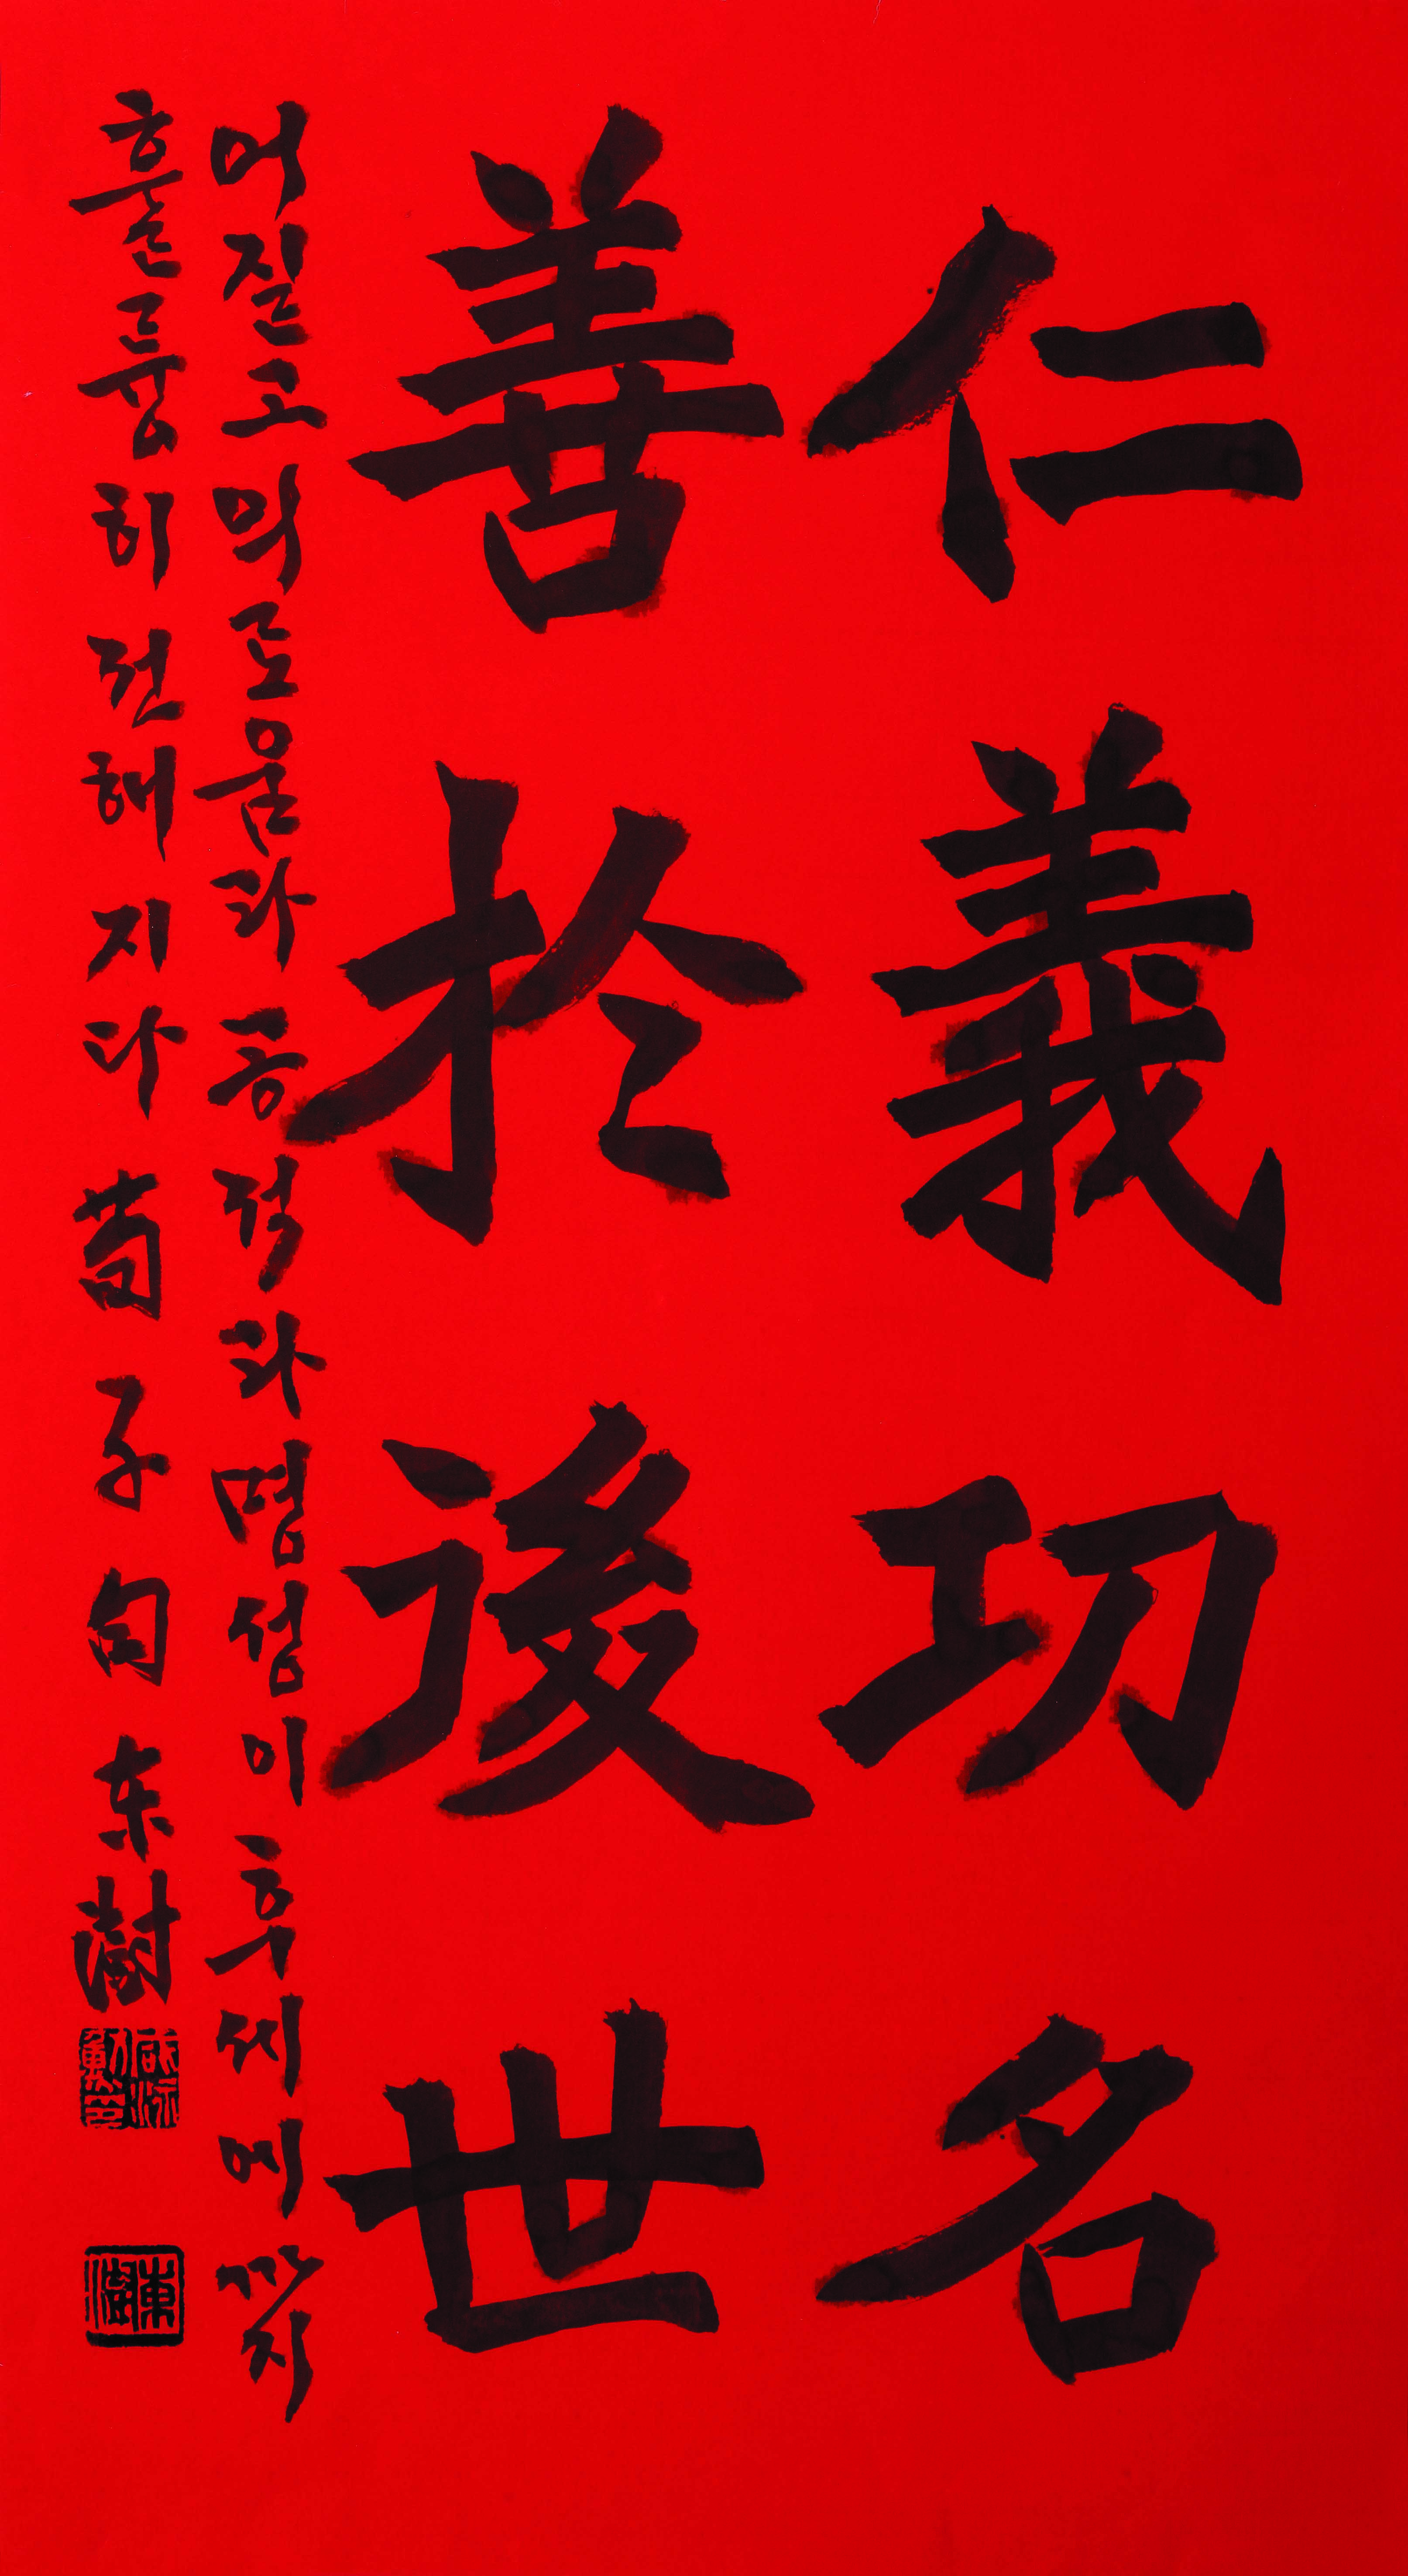 仁義功名
善於後世
어질고 의로움과 공적과 명성이 후세에까지
훌륭히 전해지다 荀子句 东樹
東樹